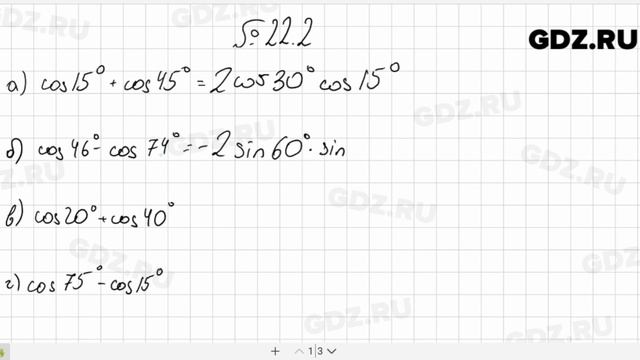 № 22.2
GDZ.RU
а) cos15° + cos45° = 2cos30° cos15°
б) cos46° - cos74° = -2sin60° · sin
в) cos20° + cos40°
г) cos75° - cos15°
GDZ.RU
GDZ.RU
GDZ.RU
GDZ.RU
GDZ.RU
GDZ.RU
GDZ.RU
1 | 3